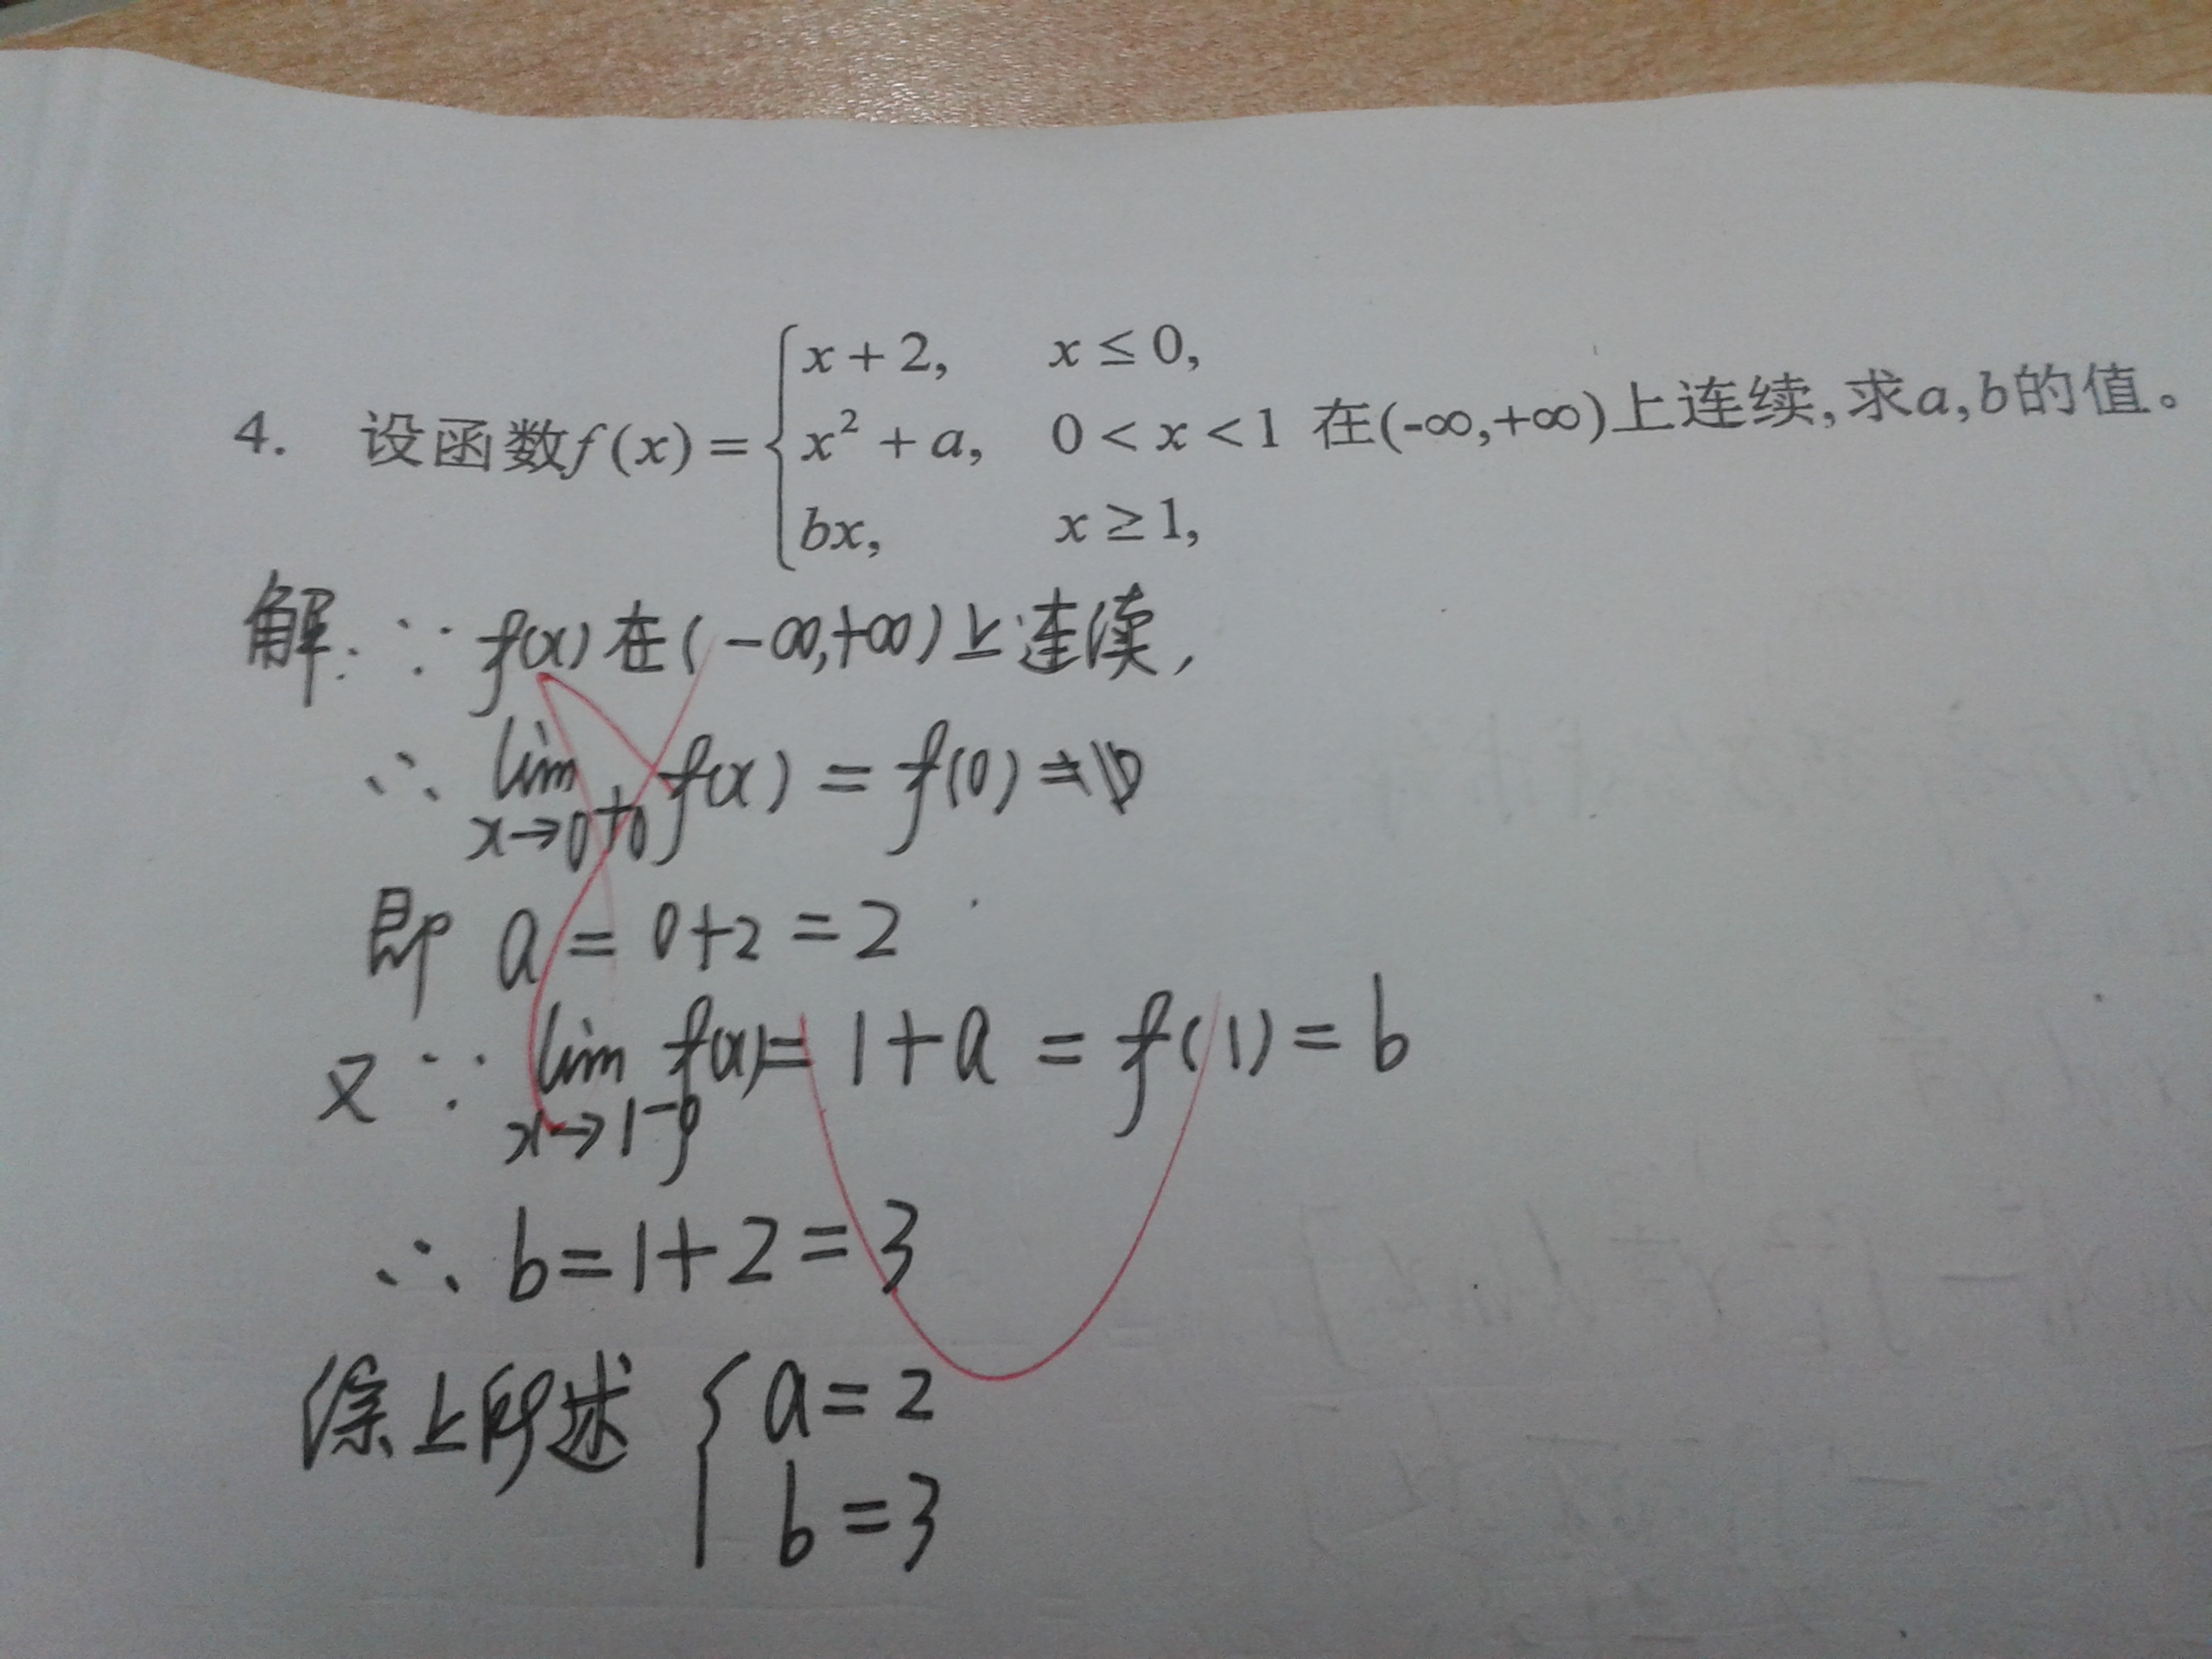 4. 设函数f(x)={x+2, x≤0, x²+a, 0<x<1 bx, x≥1, 在(-∞,+∞)上连续,求a,b的值。
解: ∵ f(x)在(-∞,+∞)上连续,
∴ lim x→0+0 f(x) = f(0)
即 a = 0+2 = 2
又∵ lim x→1-0 f(x) = 1+a = f(1) = b
∴ b=1+2=3
综上所述 { a=2
b=3